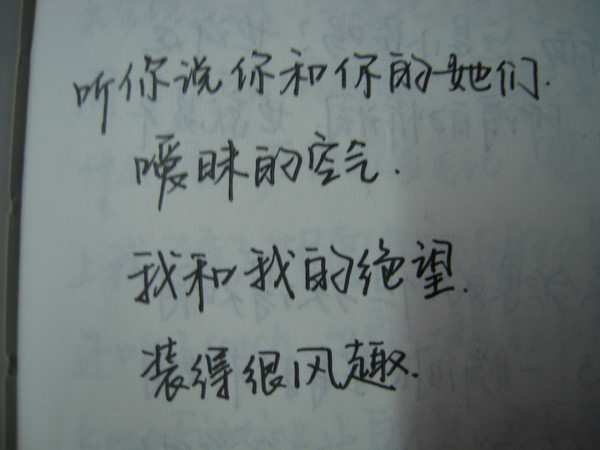 听你说你和你的她们.
嗳昧的空气.
我和我的绝望.
装得很风趣.